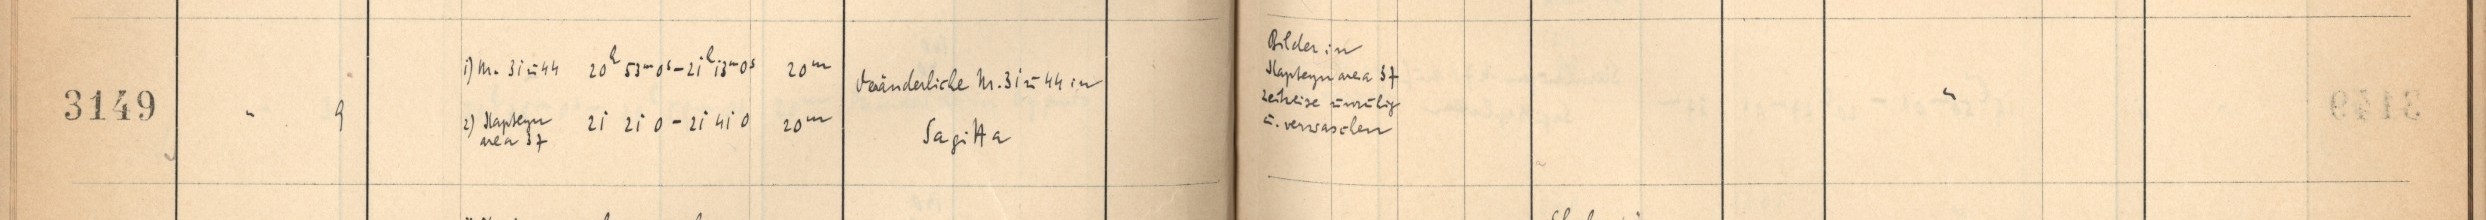 3149 " 9
1) Nr. 31 u 44 20h 53m 0s - 21h 13m 0s 20m
2) Kapteyn area 37 21 21 0 - 21 41 0 20m
Veränderliche Nr. 31 u 44 in
Sagitta
Bilder in
Kapteyn area 37
zeitweise unruhig
u. verwaschen
"